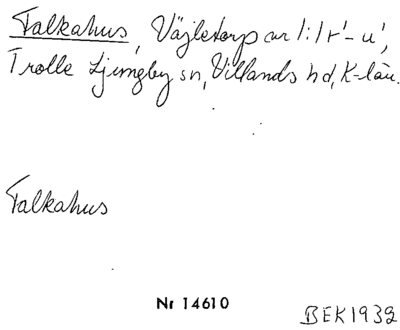 Falkahus, Väjletorp ar 1:1 r'-u',
Trolle Ljungby sn, Villands hd, K-län.
Falkahus
Nr 14610
BEK1932